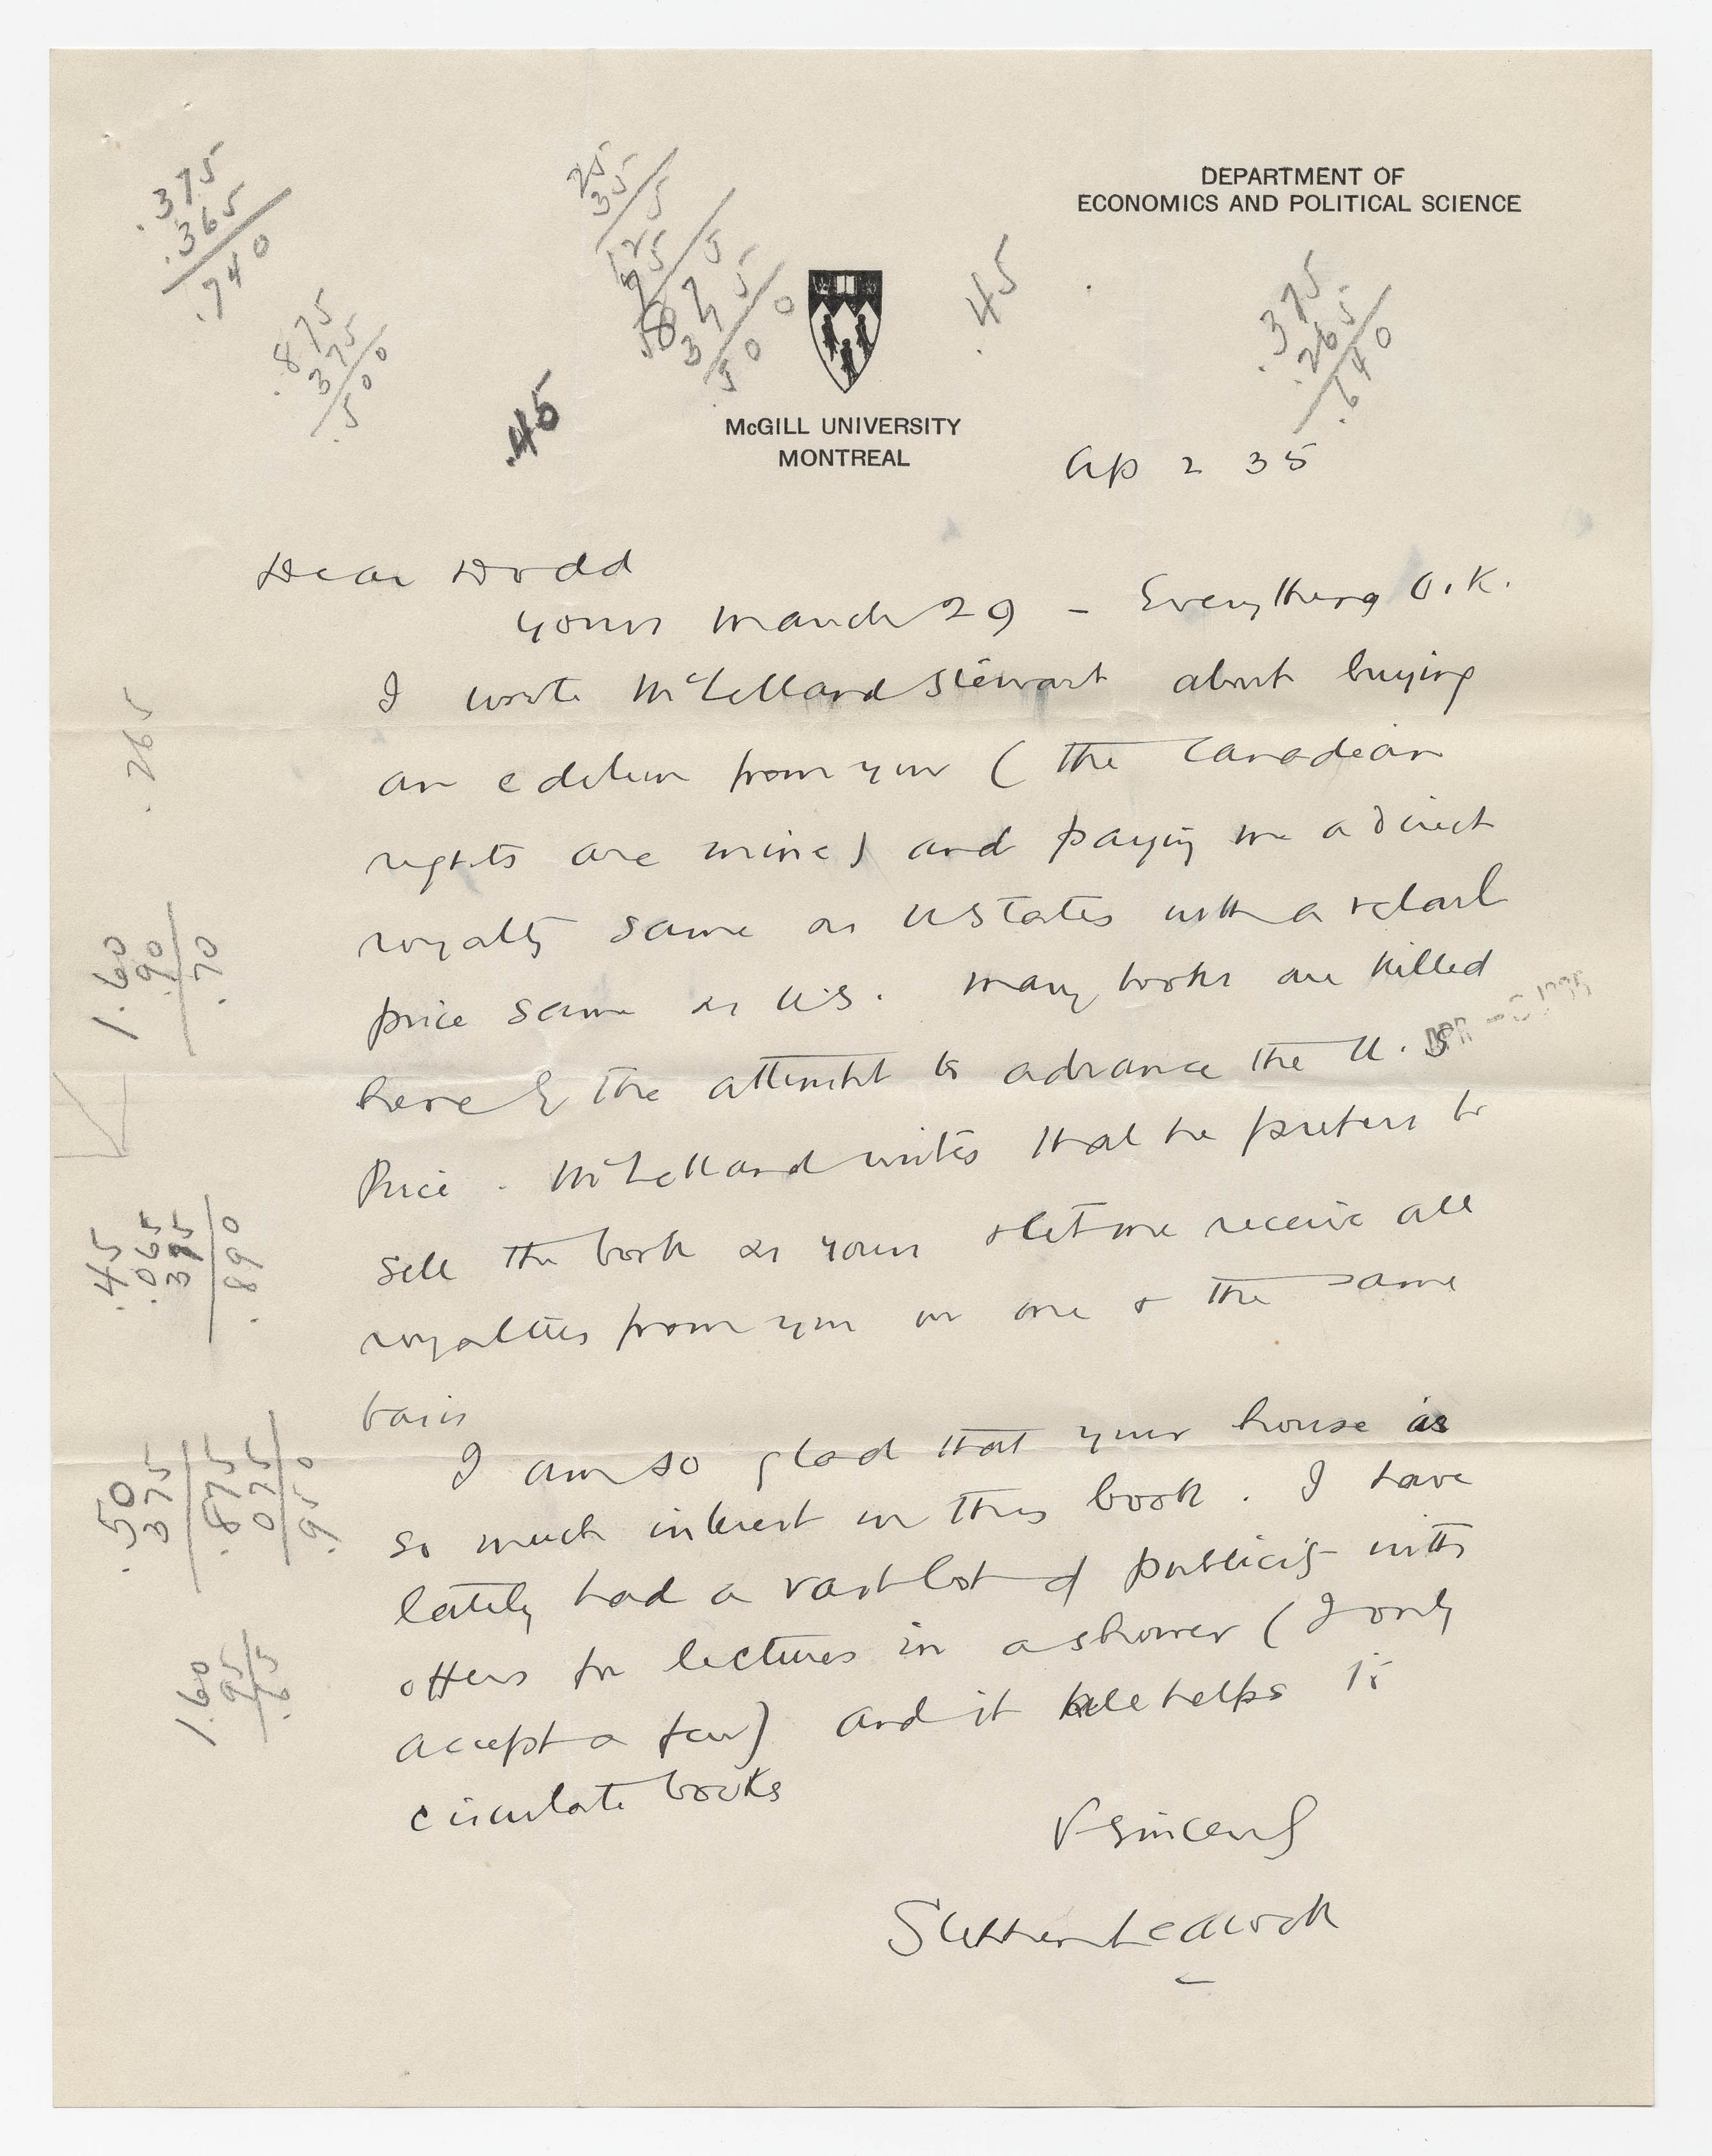 DEPARTMENT OF
ECONOMICS AND POLITICAL SCIENCE
.375
.365
.740
.875
375
.500
.45
25
35
.45
.375
.265
.640
McGILL UNIVERSITY
MONTREAL
Ap 2 35
Dear Dodd
yours March 29 - Everything O.K.
I wrote McLelland Stewart about buying
an edition from you (the Canadian
rights are mine) and paying me a direct
royalty same as U States with a retail
price same as U.S. Many books are killed
here by the attempt to advance the U.S
Price. McLelland writes that he prefers to
sell the book as yours & let me receive all
royalties from you on one & the same
basis
I am so glad that your house is
so much interest in this book. I have
lately had a vast lot of publicity with
offers for lectures in a shower (I only
accept a few) and it all helps to
circulate books
V sincerely
Stephen Leacock
.265
1.60
.90
.70
.45
.065
375
.890
.50
375
.875
075
.950
1.60
95
.65